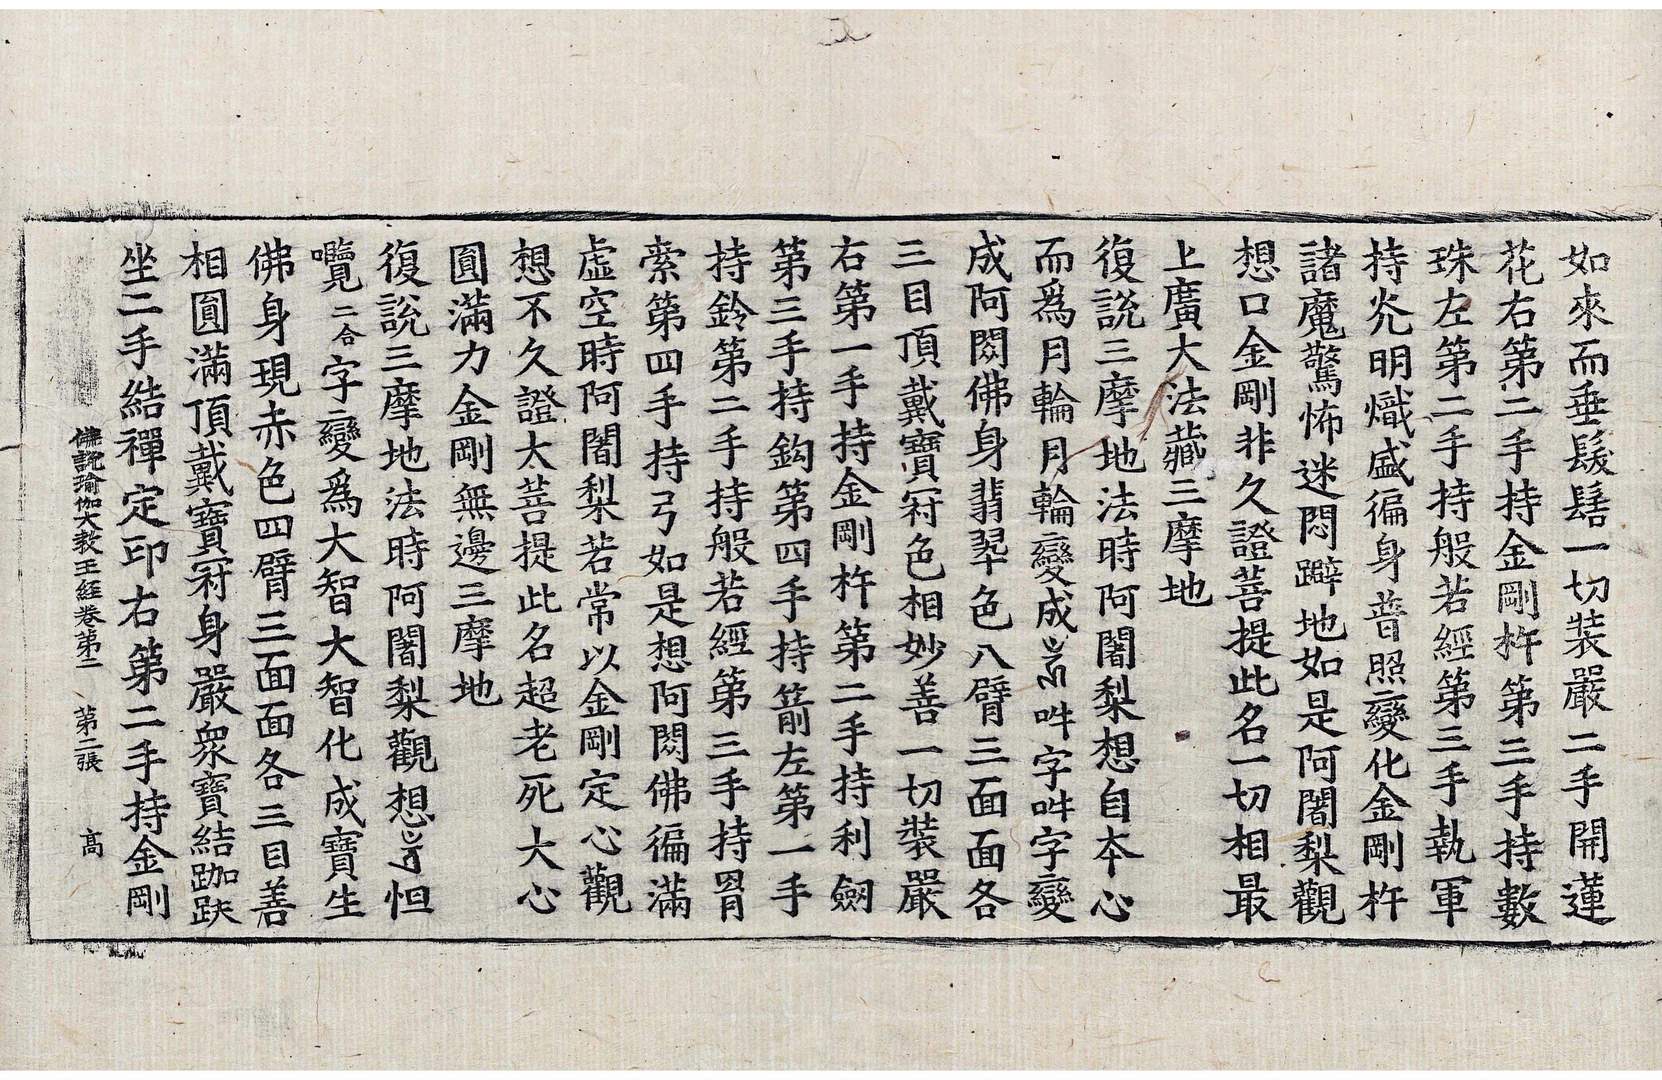 如來而垂髮髻一切裝嚴二手開蓮
花右第二手持金剛杵第三手持數
珠左第二手持般若經第三手執軍
持光明熾盛徧身普照變化金剛杵
諸魔驚怖迷悶躃地如是阿闍梨觀
想口金剛非久證菩提此名一切相最
上廣大法藏三摩地
復說三摩地法時阿闍梨想自本心
而爲月輪月輪變成吽字吽字變
成阿閦佛身翡翠色八臂三面面各
三目頂戴寶冠色相妙善一切裝嚴
右第一手持金剛杵第二手持利劒
第三手持鈎第四手持箭左第一手
持鈴第二手持般若經第三手持罥
索第四手持弓如是想阿閦佛徧滿
虛空時阿闍梨若常以金剛定心觀
想不久證大菩提此名超老死大心
圓滿力金剛無邊三摩地
復說三摩地法時阿闍梨觀想怛
囕二合字變爲大智大智化成寶生
佛身現赤色四臂三面面各三目善
相圓滿頂戴寶冠身嚴衆寶結跏趺
坐二手結禪定印右第二手持金剛
佛說瑜伽大教王經卷第二 第二張 高